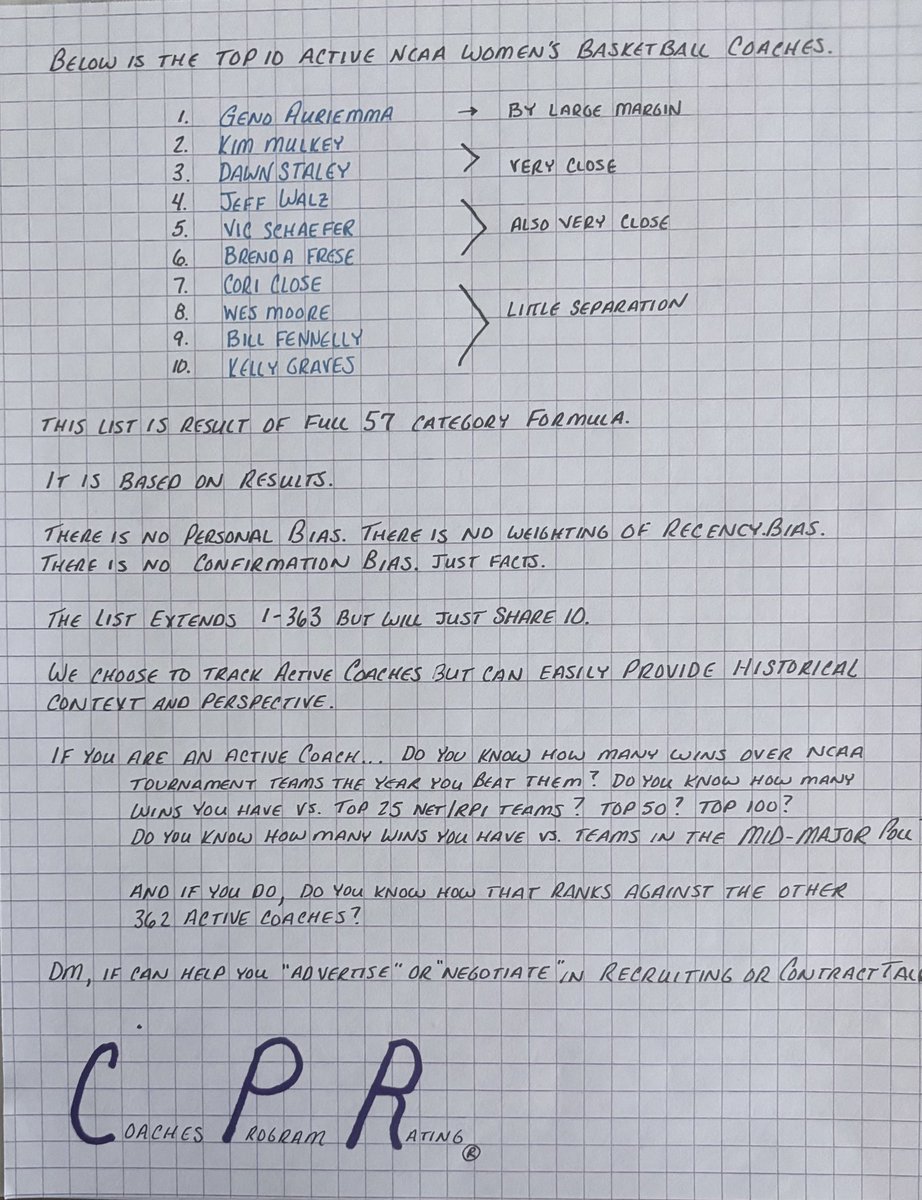 BELOW IS THE TOP 10 ACTIVE NCAA WOMEN'S BASKETBALL COACHES.
1. GENO AURIEMMA → BY LARGE MARGIN
2. KIM MULKEY
3. DAWN STALEY > VERY CLOSE
4. JEFF WALZ
5. VIC SCHAEFER > ALSO VERY CLOSE
6. BRENDA FRESE
7. CORI CLOSE
8. WES MOORE > LITTLE SEPARATION
9. BILL FENNELLY
10. KELLY GRAVES
THIS LIST IS RESULT OF FULL 57 CATEGORY FORMULA.
IT IS BASED ON RESULTS.
THERE IS NO PERSONAL BIAS. THERE IS NO WEIGHTING OF RECENCY.BIAS.
THERE IS NO CONFIRMATION BIAS. JUST FACTS.
THE LIST EXTENDS 1-363 BUT WILL JUST SHARE 10.
WE CHOOSE TO TRACK ACTIVE COACHES BUT CAN EASILY PROVIDE HISTORICAL
CONTEXT AND PERSPECTIVE.
IF YOU ARE AN ACTIVE COACH... DO YOU KNOW HOW MANY WINS OVER NCAA
TOURNAMENT TEAMS THE YEAR YOU BEAT THEM? DO YOU KNOW HOW MANY
WINS YOU HAVE VS. TOP 25 NET/RPI TEAMS? TOP 50? TOP 100?
DO YOU KNOW HOW MANY WINS YOU HAVE VS. TEAMS IN THE MID-MAJOR POLL
AND IF YOU DO, DO YOU KNOW HOW THAT RANKS AGAINST THE OTHER
362 ACTIVE COACHES?
DM, IF CAN HELP YOU "ADVERTISE" OR "NEGOTIATE" IN RECRUITING OR CONTRACT
COACHES PROGRAM RATING ®